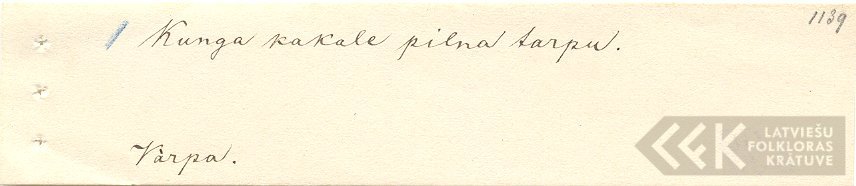 1139
1 Kunga kakale pilna tarpu.
Vārpa.
LATVIEŠU
FOLKLORAS
KRĀTUVE